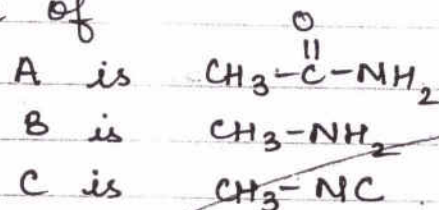 of
O
||
A is CH3-C-NH2
B is CH3-NH2
C is CH3-NC